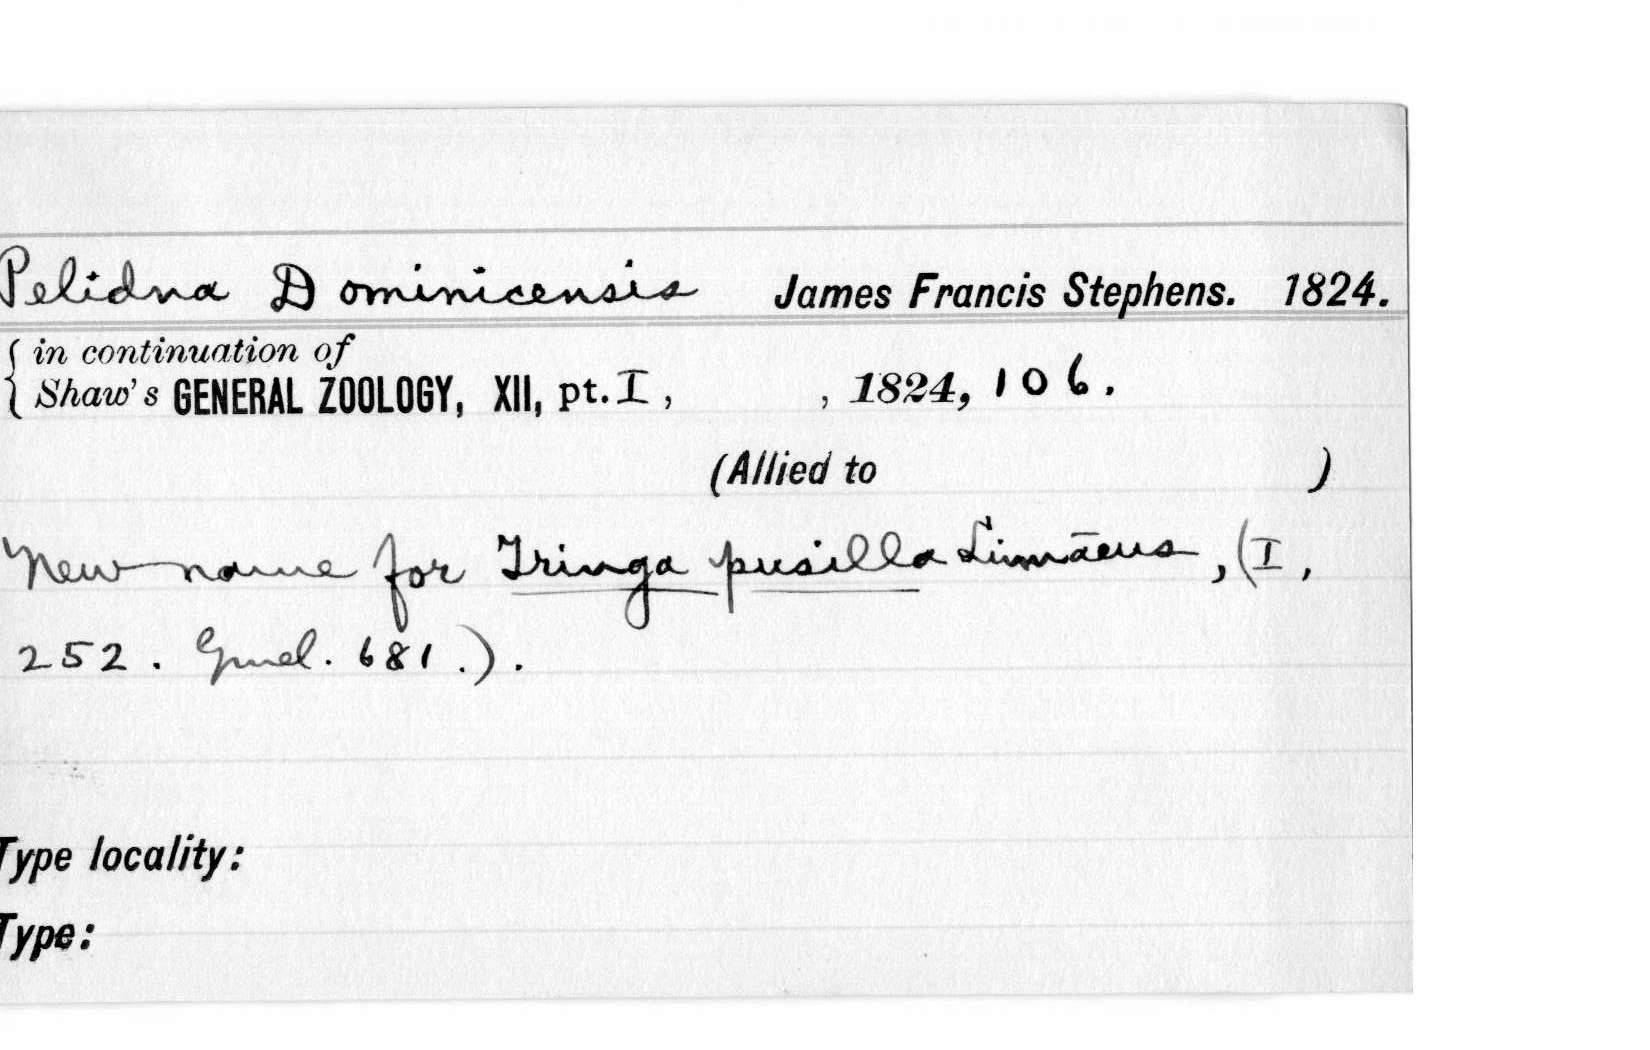 Pelidna Dominicensis James Francis Stephens. 1824.
in continuation of
Shaw's GENERAL ZOOLOGY, XII, pt. I, , 1824, 106.
(Allied to )
New name for Tringa pusilla Linnaeus, (I,
252. Gmel. 681.).
Type locality:
Type: